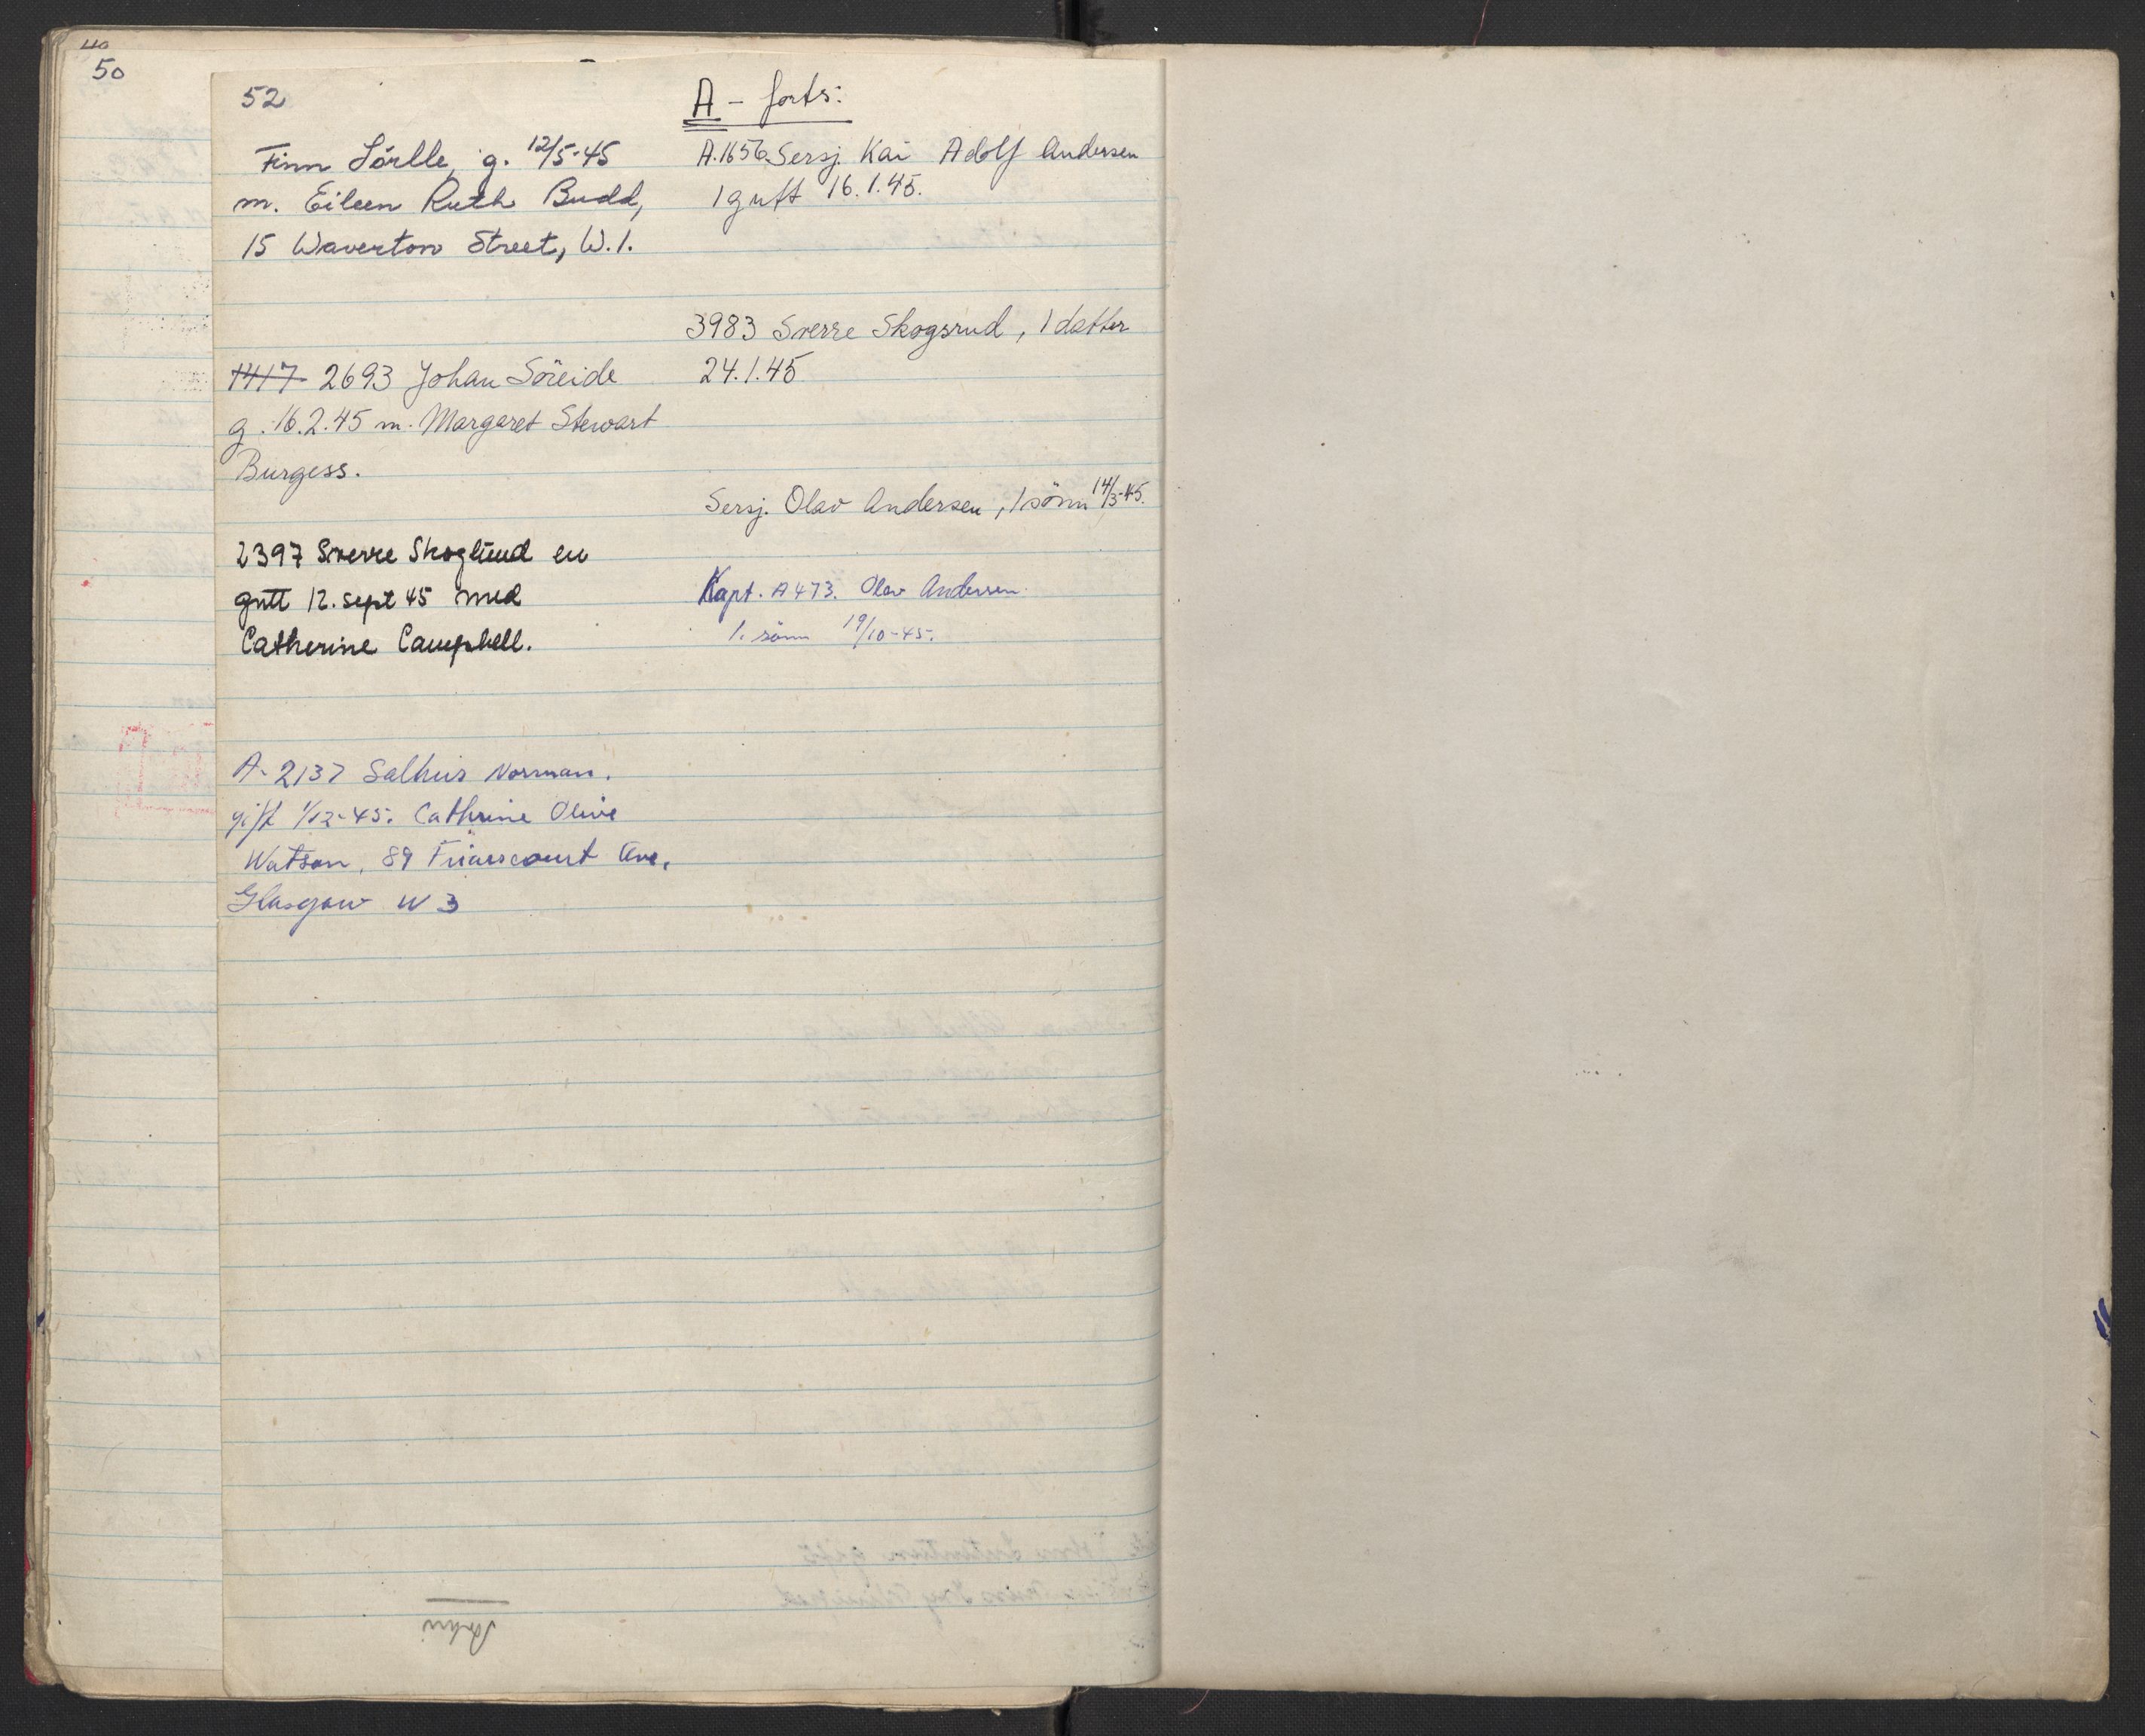 50
52
Finn Sörlle, g. 12/5-45
m. Eileen Ruth Budd,
15 Waverton Street, W.1.
1417 2693 Johan Söreide
g. 16.2.45 m. Margaret Stewart
Burgess.
2397 Sverre Skoglund en
gutt 12. sept 45 med
Catherine Campbell.
A- 2137 Salhus Norman.
gift 1/12-45. Cathrine Olive
Watson, 89 Friarscourt Ave,
Glasgow W 3
A - forts:
A.1656. Sersj. Kai Adolf Andersen
1 gutt 16.1.45.
3983 Sverre Skogsrud, 1 datter
24.1.45
Sersj. Olav Andersen, 1 sönn 14/3-45.
Kapt. A 473. Olav Andersen.
1. sönn 19/10-45.